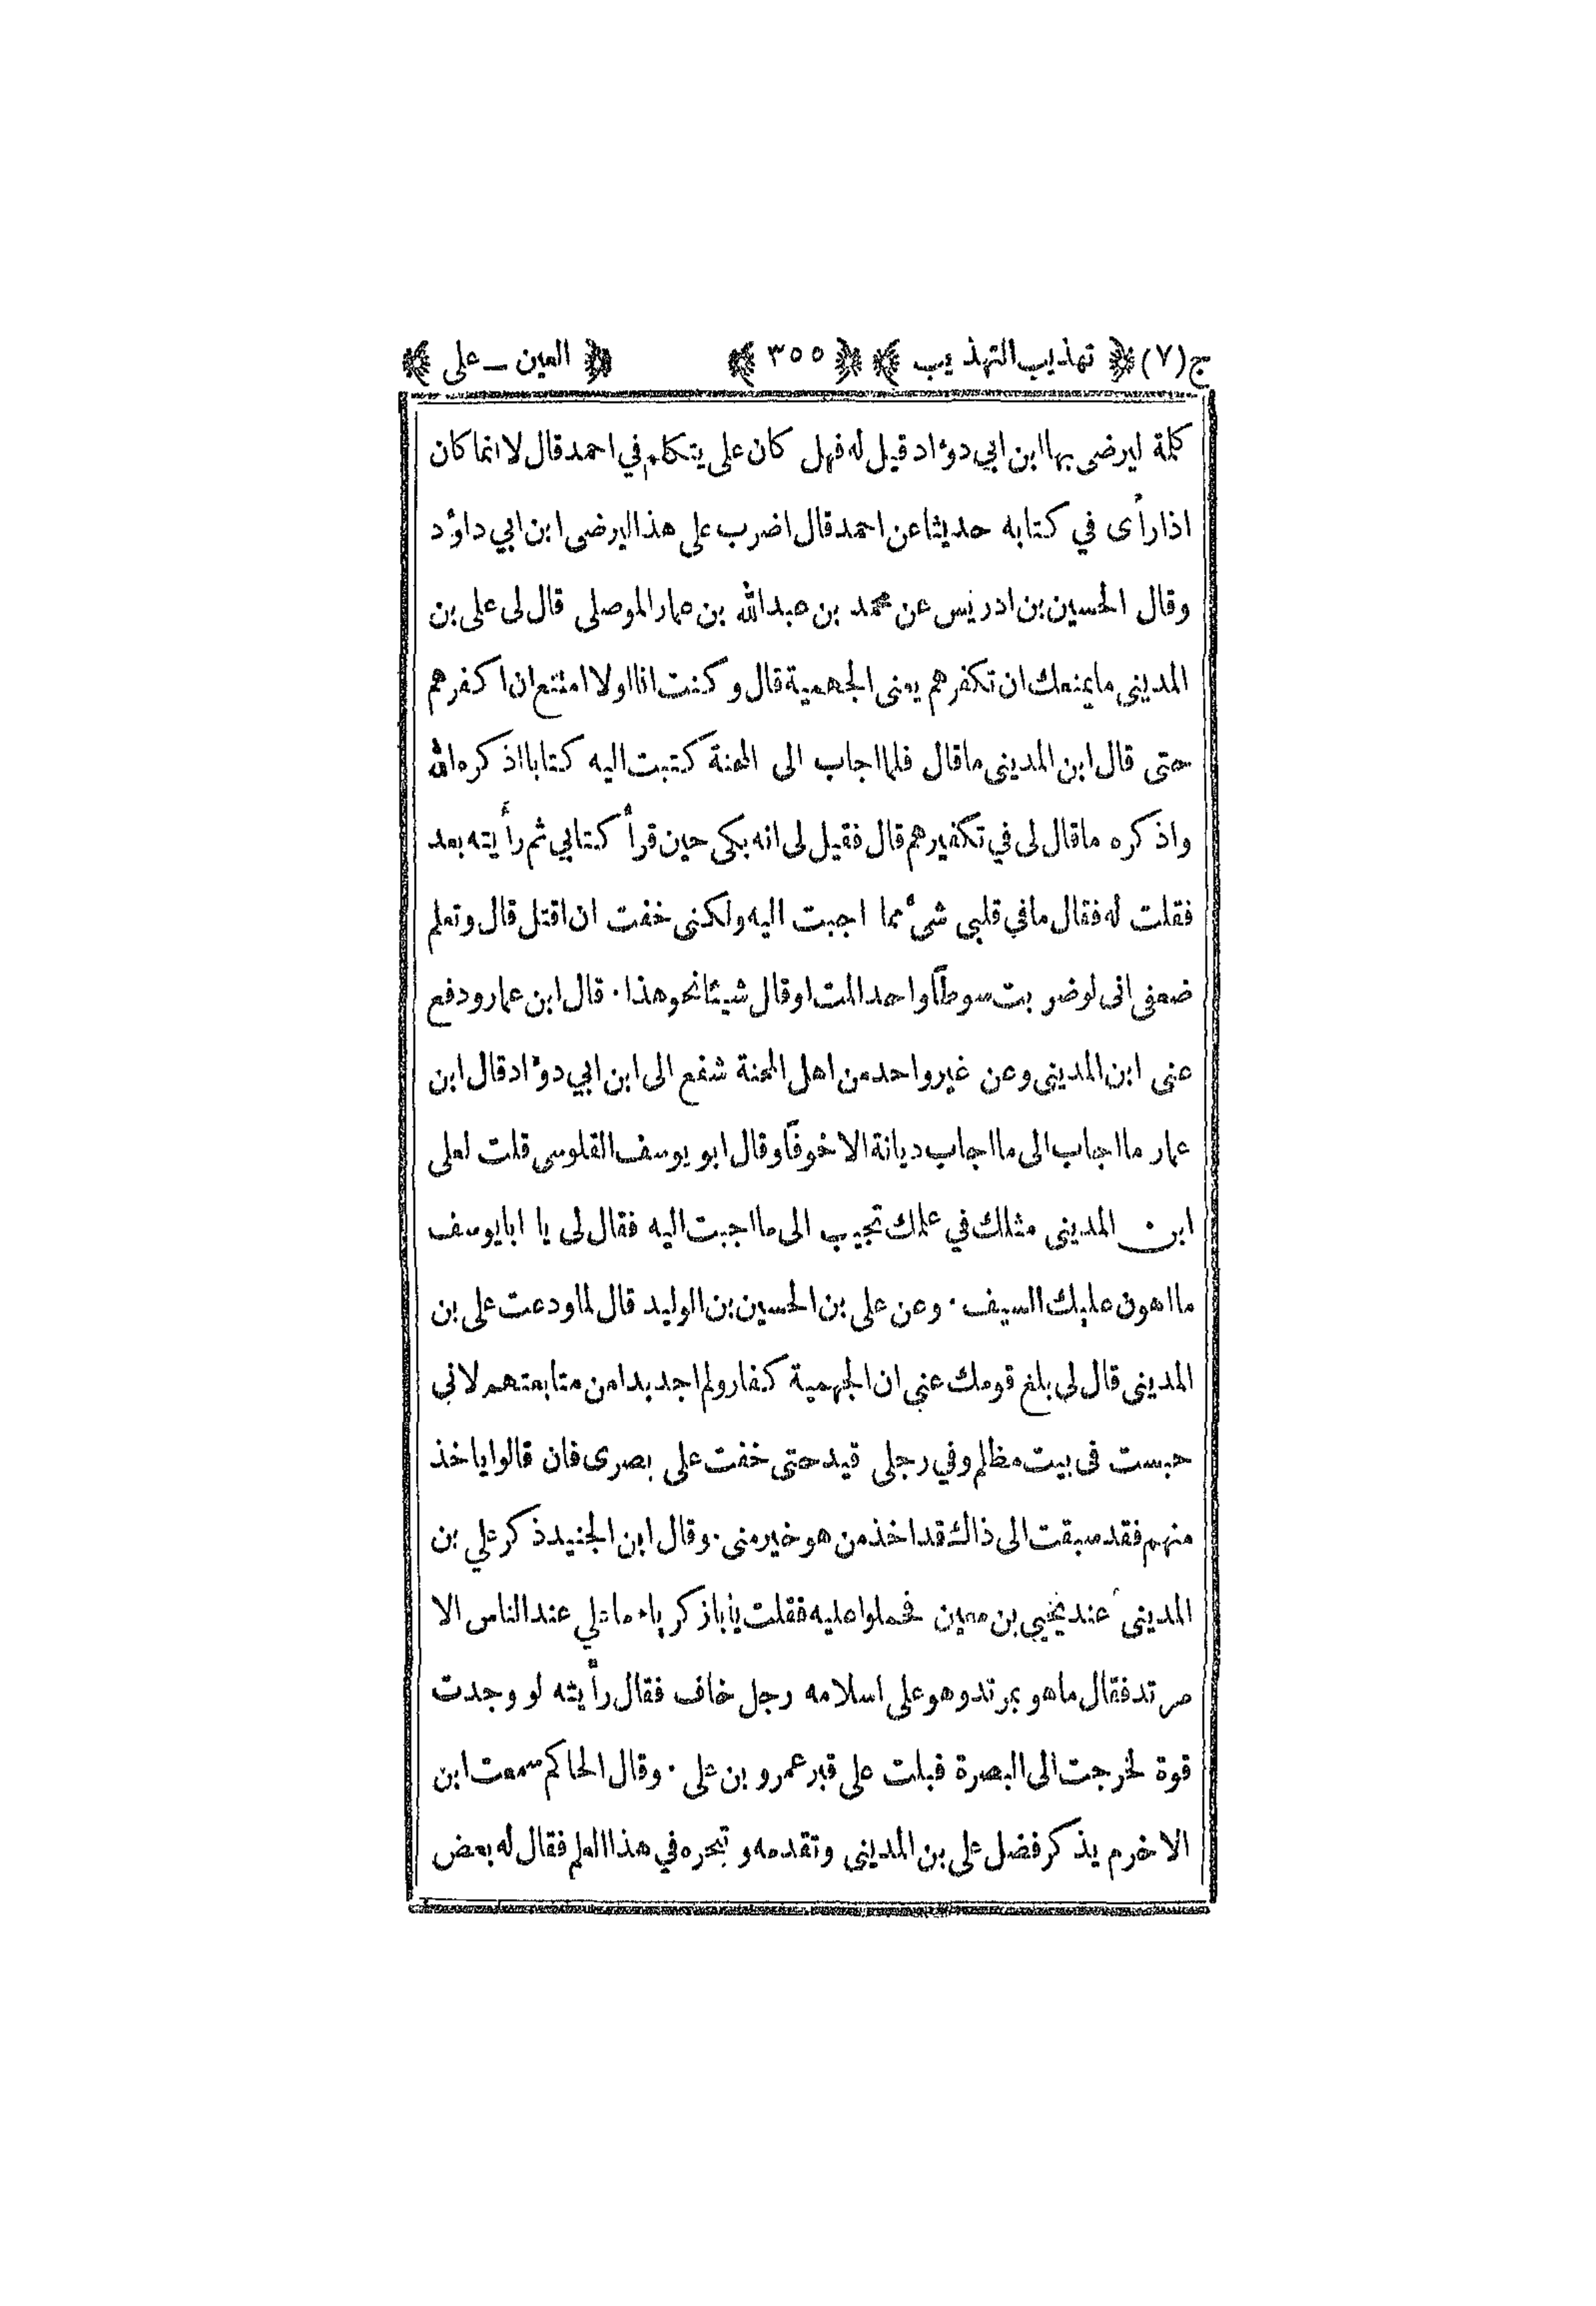 ج(٧) ﴿ تهذيب التهذيب ﴾ ﴿ ٣٥٥ ﴾ ﴿ العين ــ على ﴾
كلمة ليرضى بها ابن ابي دؤاد قيل له فهل كان على يتكلم في احمد قال لا انما كان
اذا رأى في كتابه حديثا عن احمد قال اضرب على هذا ليرضى ابن ابي داؤد
وقال الحسين بن ادريس عن محمد بن عبد الله بن عمار الموصلى قال لى على بن
المدينى ما يمنعك ان تكفرهم يعنى الجهمية قال وكنت انا اولا امتنع ان اكفرهم
حتى قال ابن المدينى ما قال فلما اجاب الى المحنة كتبت اليه كتابا اذكره الله
واذكره ما قال لى في تكفيرهم قال فقيل لى انه بكى حين قرأ كتابي ثم رأيته بعد
فقلت له فقال ما في قلبي شئ مما اجبت اليه ولكنى خفت ان اقتل قال وتعلم
ضعفى انى لو ضربت سوطاً واحدا لمت او قال شيئا نحو هذا · قال ابن عمار ودفع
عنى ابن المدينى وعن غير واحد من اهل المحنة شفع الى ابن ابي دؤاد قال ابن
عمار ما اجاب الى ما اجاب ديانة الا خوفاً وقال ابو يوسف القلوسى قلت لعلى
ابن المدينى مثلك في علمك تجيب الى ما اجبت اليه فقال لى يا ابا يوسف
ما اهون عليك السيف · وعن على بن الحسين بن الوليد قال لما ودعت على بن
المدينى قال لى بلغ قومك عنى ان الجهمية كفار ولم اجد بدا من متابعتهم لاني
حبست فى بيت مظلم وفي رجلى قيد حتى خفت على بصرى فان قالوا ياخذ
منهم فقد سبقت الى ذاك قد اخذ من هو خير منى · وقال ابن الجنيد ذكر علي بن
المدينى عند يحيى بن معين فحملوا عليه فقلت يا ابا زكرياء ما علي عند الناس الا
مرتد فقال ما هو بمرتد وهو على اسلامه رجل خاف فقال رأيته لو وجدت
قوة لخرجت الى البصرة فبلت على قبر عمرو بن على · وقال الحاكم سمعت ابن
الاخرم يذكر فضل على بن المدينى وتقدمه وتبحره في هذا العلم فقال له بعض